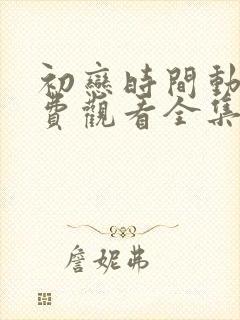 初戀時間動
費觀看全集
詹妮弗